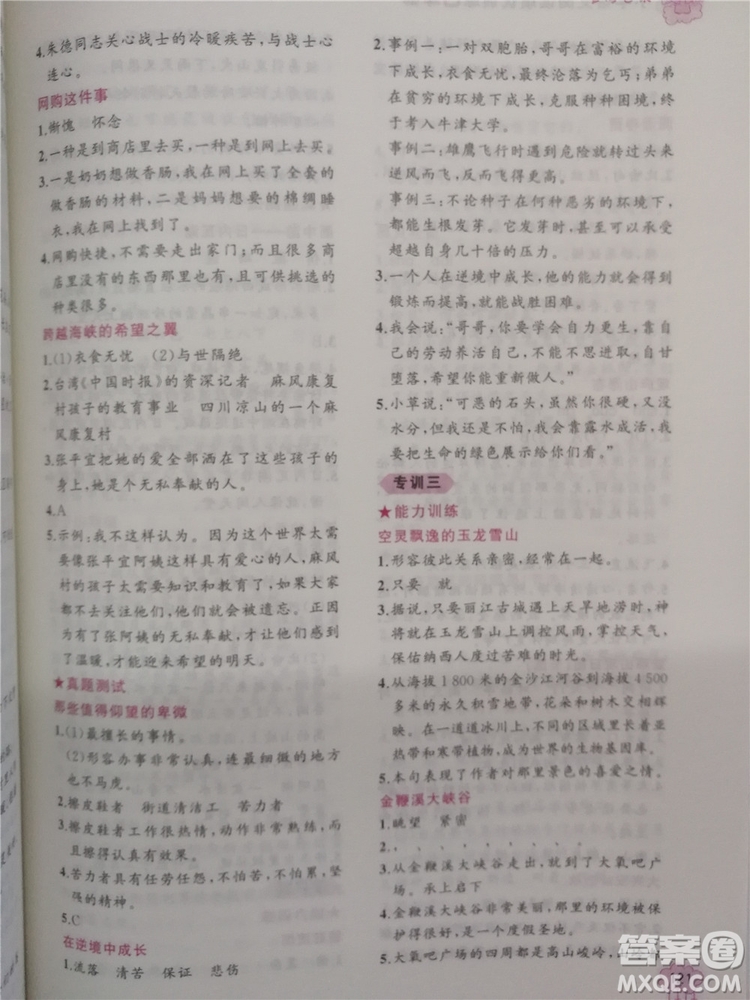 4.朱德同志关心战士的冷暖疾苦,与战士
连心。
网购这件事
1.惭愧　怀念
2.一种是到商店里去买,一种是到网上去买。
3.一是奶奶想做香肠,我在网上买了全套的
做香肠的材料,二是妈妈想要的棉绸睡
衣,我在网上找到了。
4.网购快捷,不需要走出家门;一些商店里
没有的东西那里也有;可供挑选的
种类很多。
跨越海峡的希望之翼
1.(1)衣食无忧　(2)与世隔绝
2.台湾《中国时报》的资深记者　麻风康复
村孩子的教育事业　四川凉山的一个麻
风康复村
3.张平宜把她的爱全部洒在了这些孩子的
身上,她是一个无私奉献的人。
4.A
5.示例:我不这样认为。因为这个世界太需
要像张平宜阿姨这样有爱心的人,麻风
村的孩子太需要知识和教育了,如果人
们不去关注他们,他们就会被遗忘。正
因为有了张阿姨的无私奉献,才让他们感到
了温暖,才能迎来希望的明天。
★真题测试
那些值得仰望的卑微
1.(1)最擅长的事情。
(2)形容办事非常认真,连最细微的地方
也不马虎。
2.擦皮鞋者　街道清洁工　苦力者
3.擦皮鞋者工作很热情,动作非常熟练,而
且擦得认真有效果。
4.苦力者具有任劳任怨,不怕苦,不怕累,坚
强的特点。
5.C
在逆境中成长
1.流落　清苦　保证　悲伤
2.事例一:一对双胞胎,哥哥在富裕的环境
下成长,衣食无忧,最终沦落为乞丐;弟弟
在贫穷的环境下成长,克服种种困境,终
于考入牛津大学。
事例二:雄鹰飞行时遇到危险就转过头来
逆风而飞,于是飞得更高。
事例三:不论种子在何种恶劣的环境下,
都能生根发芽。它发芽时,甚至可以承受
超越自身几十倍的压力。
3.一个人在逆境中成长,他的能力就会得到
锻炼而提高,就能战胜困难。
4.我会说:“哥哥,你要学会自力更生,靠自己
的劳动养活自己,不能不思进取,自甘
堕落,希望你能重新做人。”
5.小草说:“可恶的石头,虽然你很硬,又没
水分,但我不怕,我会靠露水成活,我
要把绿色展示给你们看。”
专训三
★能力训练
空灵飘逸的玉龙雪山
1.形容彼此关系亲密,经常在一起。
2.只要　就
3.据说,只要丽江古城遇上天旱地涝时,神
将就在玉龙雪山上调控风雨,掌控天气,
保佑纳西儿女度过苦难的时光。
4.从海拔1800米的金沙江河谷到海拔4500
多米的永久积雪地带,花朵和树木交错生
长。在一道道冰川上,不同的区域汇聚着
热带和寒带植物,成为世界的生物基因库。
5.本句表现了作者对那里景色的喜爱之情。
金鞭溪大峡谷
1.眺望　紧密
2.,　,　,　,　,　,　,
3.从金鞭溪大峡谷走出,就到了大氧吧广
场。　承上启下
4.金鞭溪大峡谷非常美丽,那里的环境被保
护得非常好。
5.大氧吧广场的四周都是高山峻岭,
答案圈